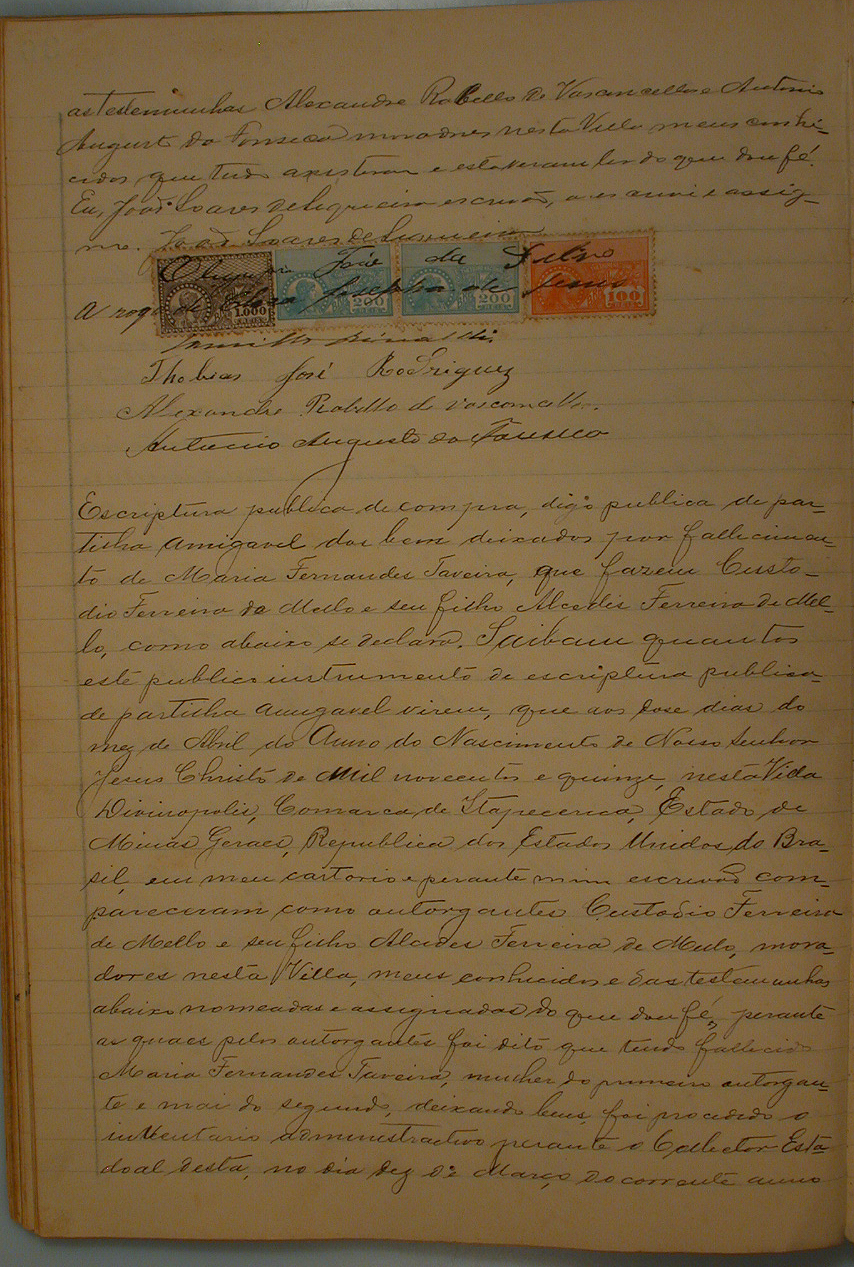 as testeminhas Alexandre Rabello de Vasconcellos e Antonio
Augusto da Fonseca moradores nesta Villa meus conhe-
cidos que tudo assistiram e estaveram lendo do que dou fé.
Eu, João Soares de Siqueira escrivão, o escrevi e assig-
no. João Soares de Siqueira
José da Silva
A rogo de Josepha de Jesus
1.000 200 200 100
Thobias José Rodriguez
Alexandre Rabello de Vasconcellos.
Antonio Augusto da Fonseca
Escriptura publica de compra, digo publica de par-
tilha amigavel dos bens deixados por fallecimen-
to de Maria Fernandes Taveira, que fazem Custo-
dio Ferreira de Mello e seu filho Alcedis Ferreira de Mel-
lo, como abaixo se declara. Saibam quantos
este publico instrumento de escriptura publica
de partilha amigavel virem, que aos dose dias do
mez de Abril do Anno do Nascimento de Nosso Senhor
Jesus Christo de Mil novecentos e quinze, nesta Villa
Divinopolis, Comarca de Itapecerica, Estado de
Minas Geraes, Republica dos Estados Unidos do Bra-
sil, em meu cartorio e perante mim escrivão com-
pareceram como outorgantes Custodio Ferreira
de Mello e seu filho Alcides Ferreira de Mello, mora-
dores nesta Villa, meus conhecidos e das testemunhas
abaixo nomeadas e assignadas do que dou fé, perante
as quaes pelos outorgantes foi dito que tendo fallecido
Maria Fernandes Taveira, mulher do primeiro outorgan-
te e mai do segundo, deixando bens, foi procedido o
inventario administractivo perante o Collector Esta-
doal desta, no dia dez de Março do corrente anno